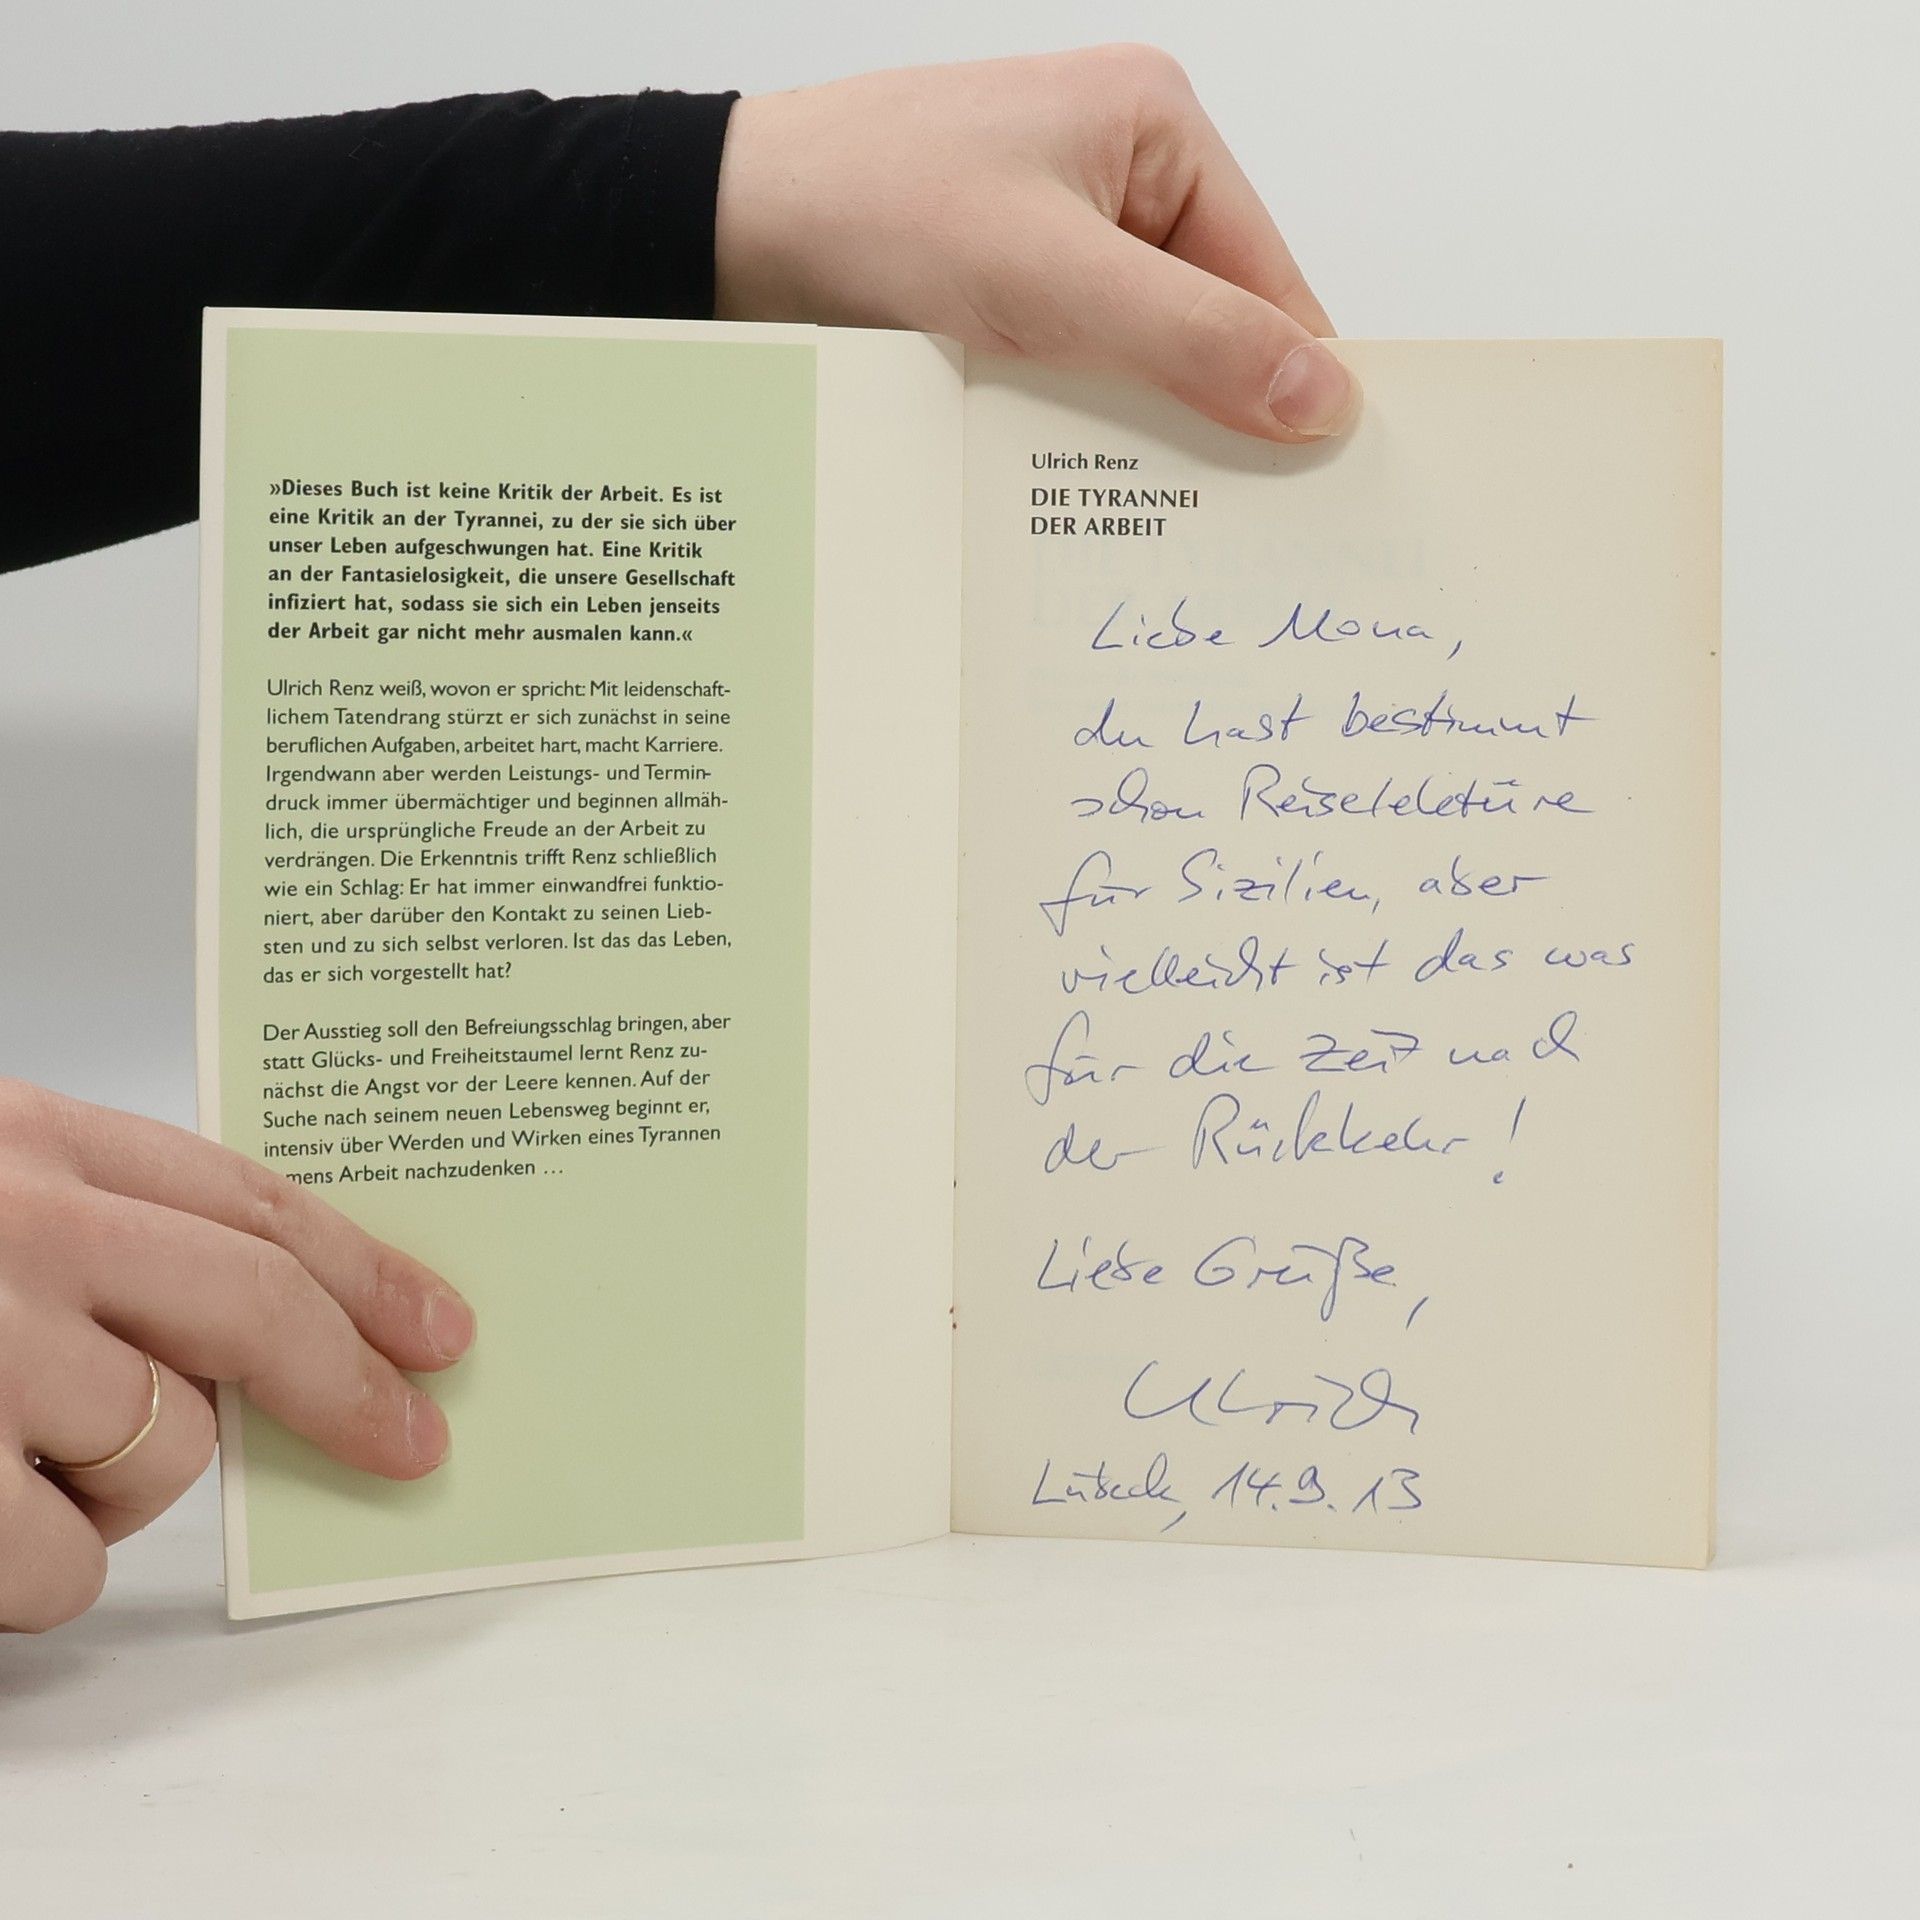 »Dieses Buch ist keine Kritik der Arbeit. Es ist
eine Kritik an der Tyrannei, zu der sie sich über
unser Leben aufgeschwungen hat. Eine Kritik
an der Fantasielosigkeit, die unsere Gesellschaft
infiziert hat, sodass sie sich ein Leben jenseits
der Arbeit gar nicht mehr ausmalen kann.«
Ulrich Renz weiß, wovon er spricht: Mit leidenschaft-
lichem Tatendrang stürzt er sich zunächst in seine
beruflichen Aufgaben, arbeitet hart, macht Karriere.
Irgendwann aber werden Leistungs- und Termin-
druck immer übermächtiger und beginnen allmäh-
lich, die ursprüngliche Freude an der Arbeit zu
verdrängen. Die Erkenntnis trifft Renz schließlich
wie ein Schlag: Er hat immer einwandfrei funktio-
niert, aber darüber den Kontakt zu seinen Lieb-
sten und zu sich selbst verloren. Ist das das Leben,
das er sich vorgestellt hat?
Der Ausstieg soll den Befreiungsschlag bringen, aber
statt Glücks- und Freiheitstaumel lernt Renz zu-
nächst die Angst vor der Leere kennen. Auf der
Suche nach seinem neuen Lebensweg beginnt er,
intensiv über Werden und Wirken eines Tyrannen
mens Arbeit nachzudenken ...
Ulrich Renz
DIE TYRANNEI
DER ARBEIT
Liebe Mona,
du hast bestimmt
schon Reiselektüre
für Sizilien, aber
vielleicht ist das was
für die Zeit nach
der Rückkehr!
Liebe Grüße,
Ulrich
Lübeck, 14.9.13